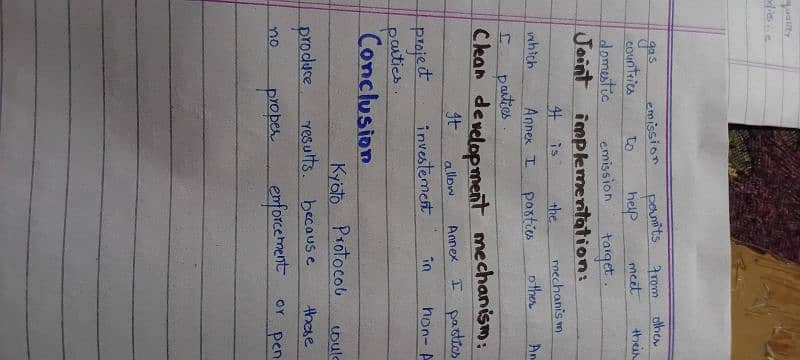 gas emission permits from other
countries to help meet their
domestic emission target.
Joint implementation:
It is the mechanism
which Annex I parties other An
I parties.
Clean development mechanism:
It allow Annex I parties
project investement in non-A
parties.
Conclusion
Kyoto Protocol
produce results. because these
no proper enforcement or pen
quality